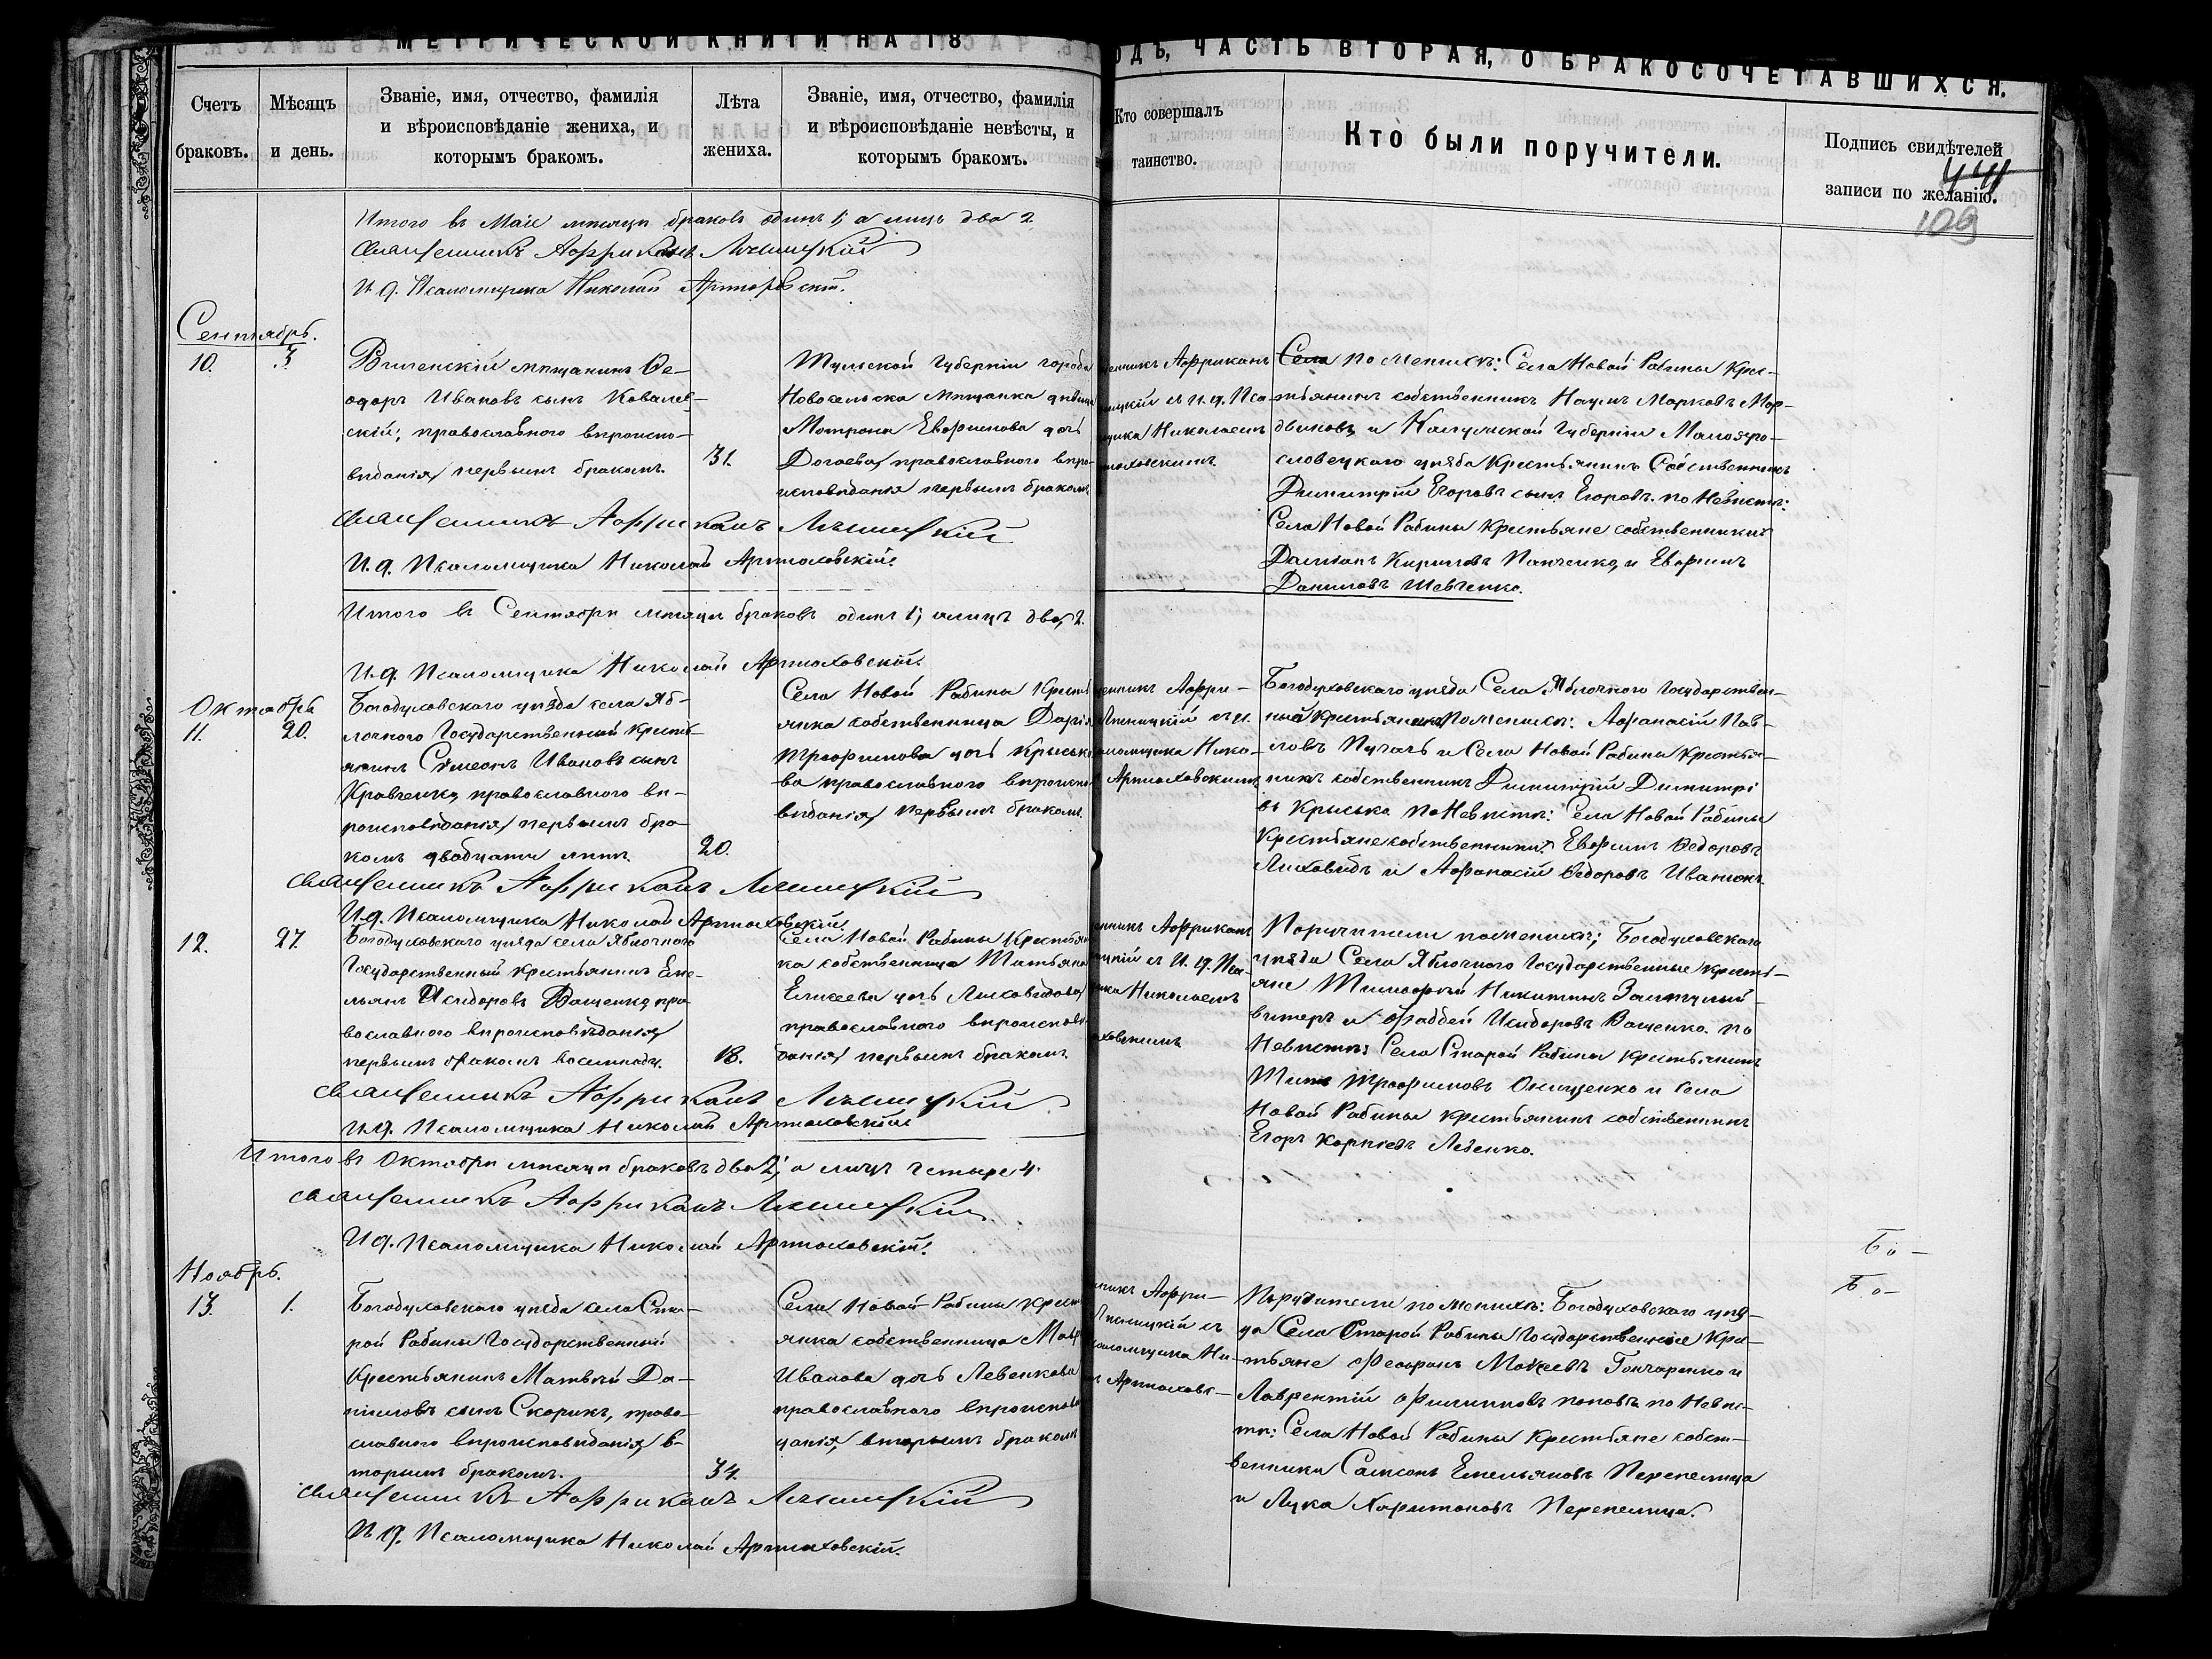 МЕТРИЧЕСКОЙ КНИГИ НА 18
ОДЪ, ЧАСТЬ ВТОРАЯ, О БРАКОСОЧЕТАВШИХСЯ.
Счетъ
браковъ.
Мѣсяцъ
и день.
Званіе, имя, отчество, фамилія
и вѣроисповѣданіе жениха, и
которымъ бракомъ.
Лѣта
жениха.
Званіе, имя, отчество, фамилія
и вѣроисповѣданіе невѣсты, и
которымъ бракомъ.
Кто совершалъ
таинство.
Кто были поручители.
Подпись свидѣтелей
записи по желанію.
441
109
Итого въ Маѣ мѣсяцѣ браковъ одинъ 1; а лицъ два 2.
Священникъ Аффриканъ
И. д. Псаломщика Николай Артюховскій.
Сентябрь.
10.
3.
Виленскій мѣщанинъ Ѳе-
одоръ Ивановъ сынъ Ковалев-
скій; православнаго вѣроиспо-
вѣданія, первымъ бракомъ.
31.
Тульской Губерніи города
Новосельска мѣщанка дѣвица
Матрона Евфимова дочь
Догаева, православнаго вѣро-
исповѣданія первымъ бракомъ
Священникъ Аффриканъ
И. д. Псаломщика Николай Артюховскій.
енникъ Аффриканъ
ицкій съ И. д. Пса-
щика Николаемъ
тюховскимъ.
Села по Женихѣ: Села Новой Рабины Крес-
тьянинъ собственникъ Наумъ Марковъ Мор-
двиновъ, и Калужской Губерніи Малояро-
словецкаго уѣзда Крестьянинъ Собственникъ
Димитрій Егоровъ сынъ Егоровъ. по Невѣстѣ:
Села Новой Рабины Крестьяне собственники
Даміанъ Кириловъ Панченко, и Евфимъ
Даниловъ Шевченко.
Итого въ Сентябрѣ мѣсяцѣ браковъ одинъ 1; а лицъ два, 2.
И. д. Псаломщика Николай Артюховскій.
Октябрь
11.
20.
Богодуховскаго уѣзда села Яб-
лочнаго Государственный Кресть-
янинъ Симеонъ Ивановъ сынъ
Кравченко, православнаго вѣ-
роисповѣданія, первымъ бра-
комъ двадцати лѣтъ.
20.
Села Новой Рабины Кресть
янка собственница Дарія
Трофимова дочь Крысько
ва православнаго вѣроиспо
вѣданія, первымъ бракомъ.
Священникъ Аффриканъ
И. д. Псаломщика Николай Артюховскій.
щенникъ Аффри-
съ и.
аломщика Нико-
Артюховскимъ
Богодуховскаго уѣзда Села Яблочнаго Государствен-
ный Крестьянинъ по Женихѣ: Афанасій Пав-
ловъ Пугачъ и Села Новой Рабины Крестья-
нинъ собственникъ Димитрій Димитрі
въ Крысько. по Невѣстѣ: Села Новой Рабины
Крестьяне собственники: Евфимъ Ѳедоровъ
Лиховидъ и Афанасій Ѳедоровъ
12.
27.
Богодуховскаго уѣзда села Яблочнаго
Государственный Крестьянинъ Еме-
льянъ Исидоровъ Ващенко, пра
вославнаго вѣроисповѣданія,
первымъ бракомъ восемнадц.
18.
Села Новой Рабины Крестьян
ка собственница Татьяна
Елисеева дочь Лиховидова,
православнаго вѣроисповѣ-
данія, первымъ бракомъ.
Священникъ Аффриканъ
И. д. Псаломщика Николай Артюховскій
енникъ Аффриканъ
цкій съ И. д. Пса
щика Николаемъ
ховскимъ
Поручители по женихѣ; Богодуховскаго
уѣзда Села Яблочнаго Государственные кресть-
яне Тимофей Никитинъ
и Фаддей Исидоровъ Ващенко. по
Невѣстѣ: Села Старой Рабины крестьянинъ
Титъ Трофимовъ Онищенко и Села
Новой Рабины крестьянинъ собственникъ
Егоръ Корнѣевъ
Итого въ Октябрѣ мѣсяцѣ браковъ два 2; а лицъ четыре 4.
Священникъ Аффриканъ
И д. Псаломщика Николай Артюховскій.
Ноябрь.
13.
1.
Богодуховскаго уѣзда села Ста-
рой Рабины Государственный
Крестьянинъ Матвѣй Да-
ниловъ сынъ Скорикъ, право-
славнаго вѣроисповѣданія, в-
торымъ бракомъ.
34.
Села Новой Рабины крест
янка собственница
Иванова дочь Левенкова
православнаго вѣроисповѣ
данія, вторымъ бракомъ
Священникъ Аффриканъ
И д. Псаломщика Николай Артюховскій.
никъ Аффри-
съ
аломщика Ни-
Артюховс-
Поручители по женихѣ: Богодуховскаго уѣз-
да Села Старой Рабины Государственные Кре-
стьяне Феофанъ Мокеевъ Гончаренко и
Лаврентій Филиповъ Поповъ по Невѣ-
стѣ: Села Новой Рабины Крестьяне собст-
венники Самсонъ Емельяновъ Перепелица
и Лука Харитоновъ Перепелица.